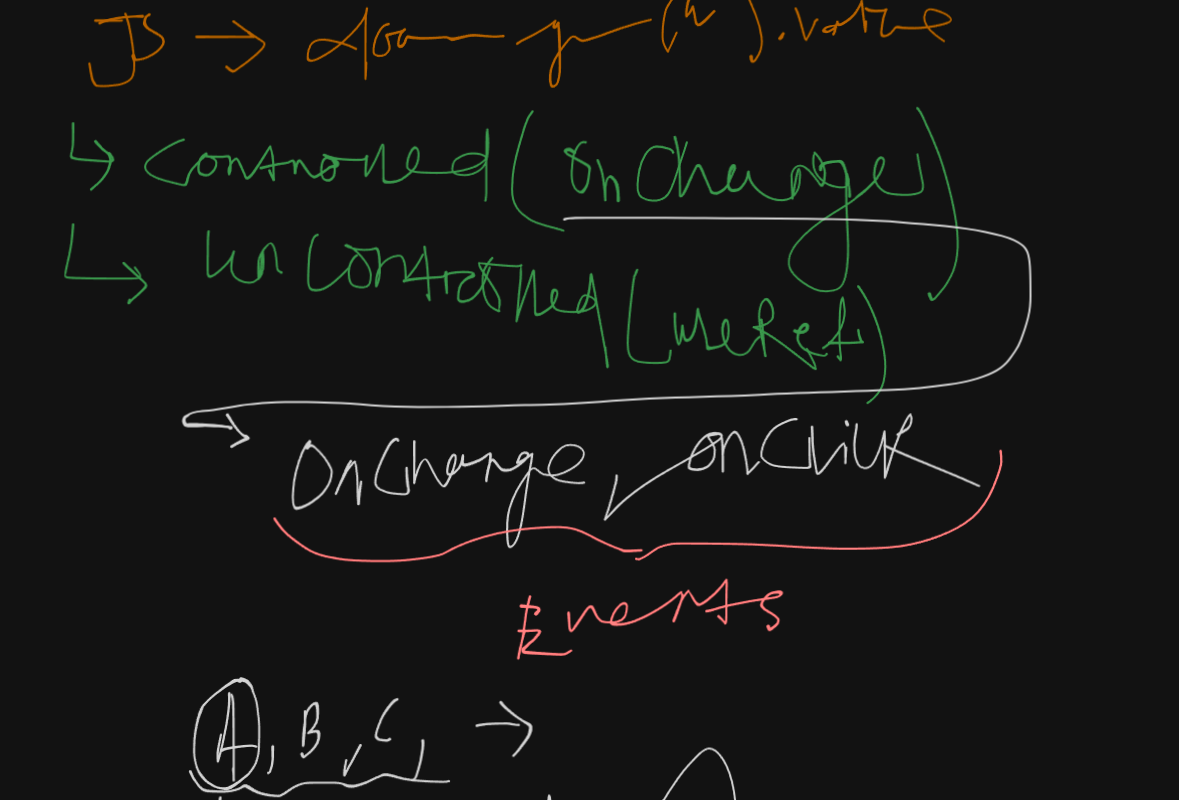 JS → (").value
↳ Controlled (onChange)
↳ UnControlled (useRef)
→ OnChange, onClick
Events
A, B, C, →